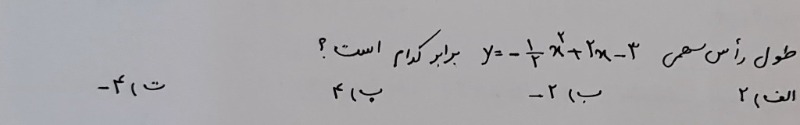 طول رأس سهمی y=-\frac{۱}{۲}x^۲+۲x-۳ برابر کدام است؟
الف) ۲ ب) -۲ پ) ۴ ت) -۴